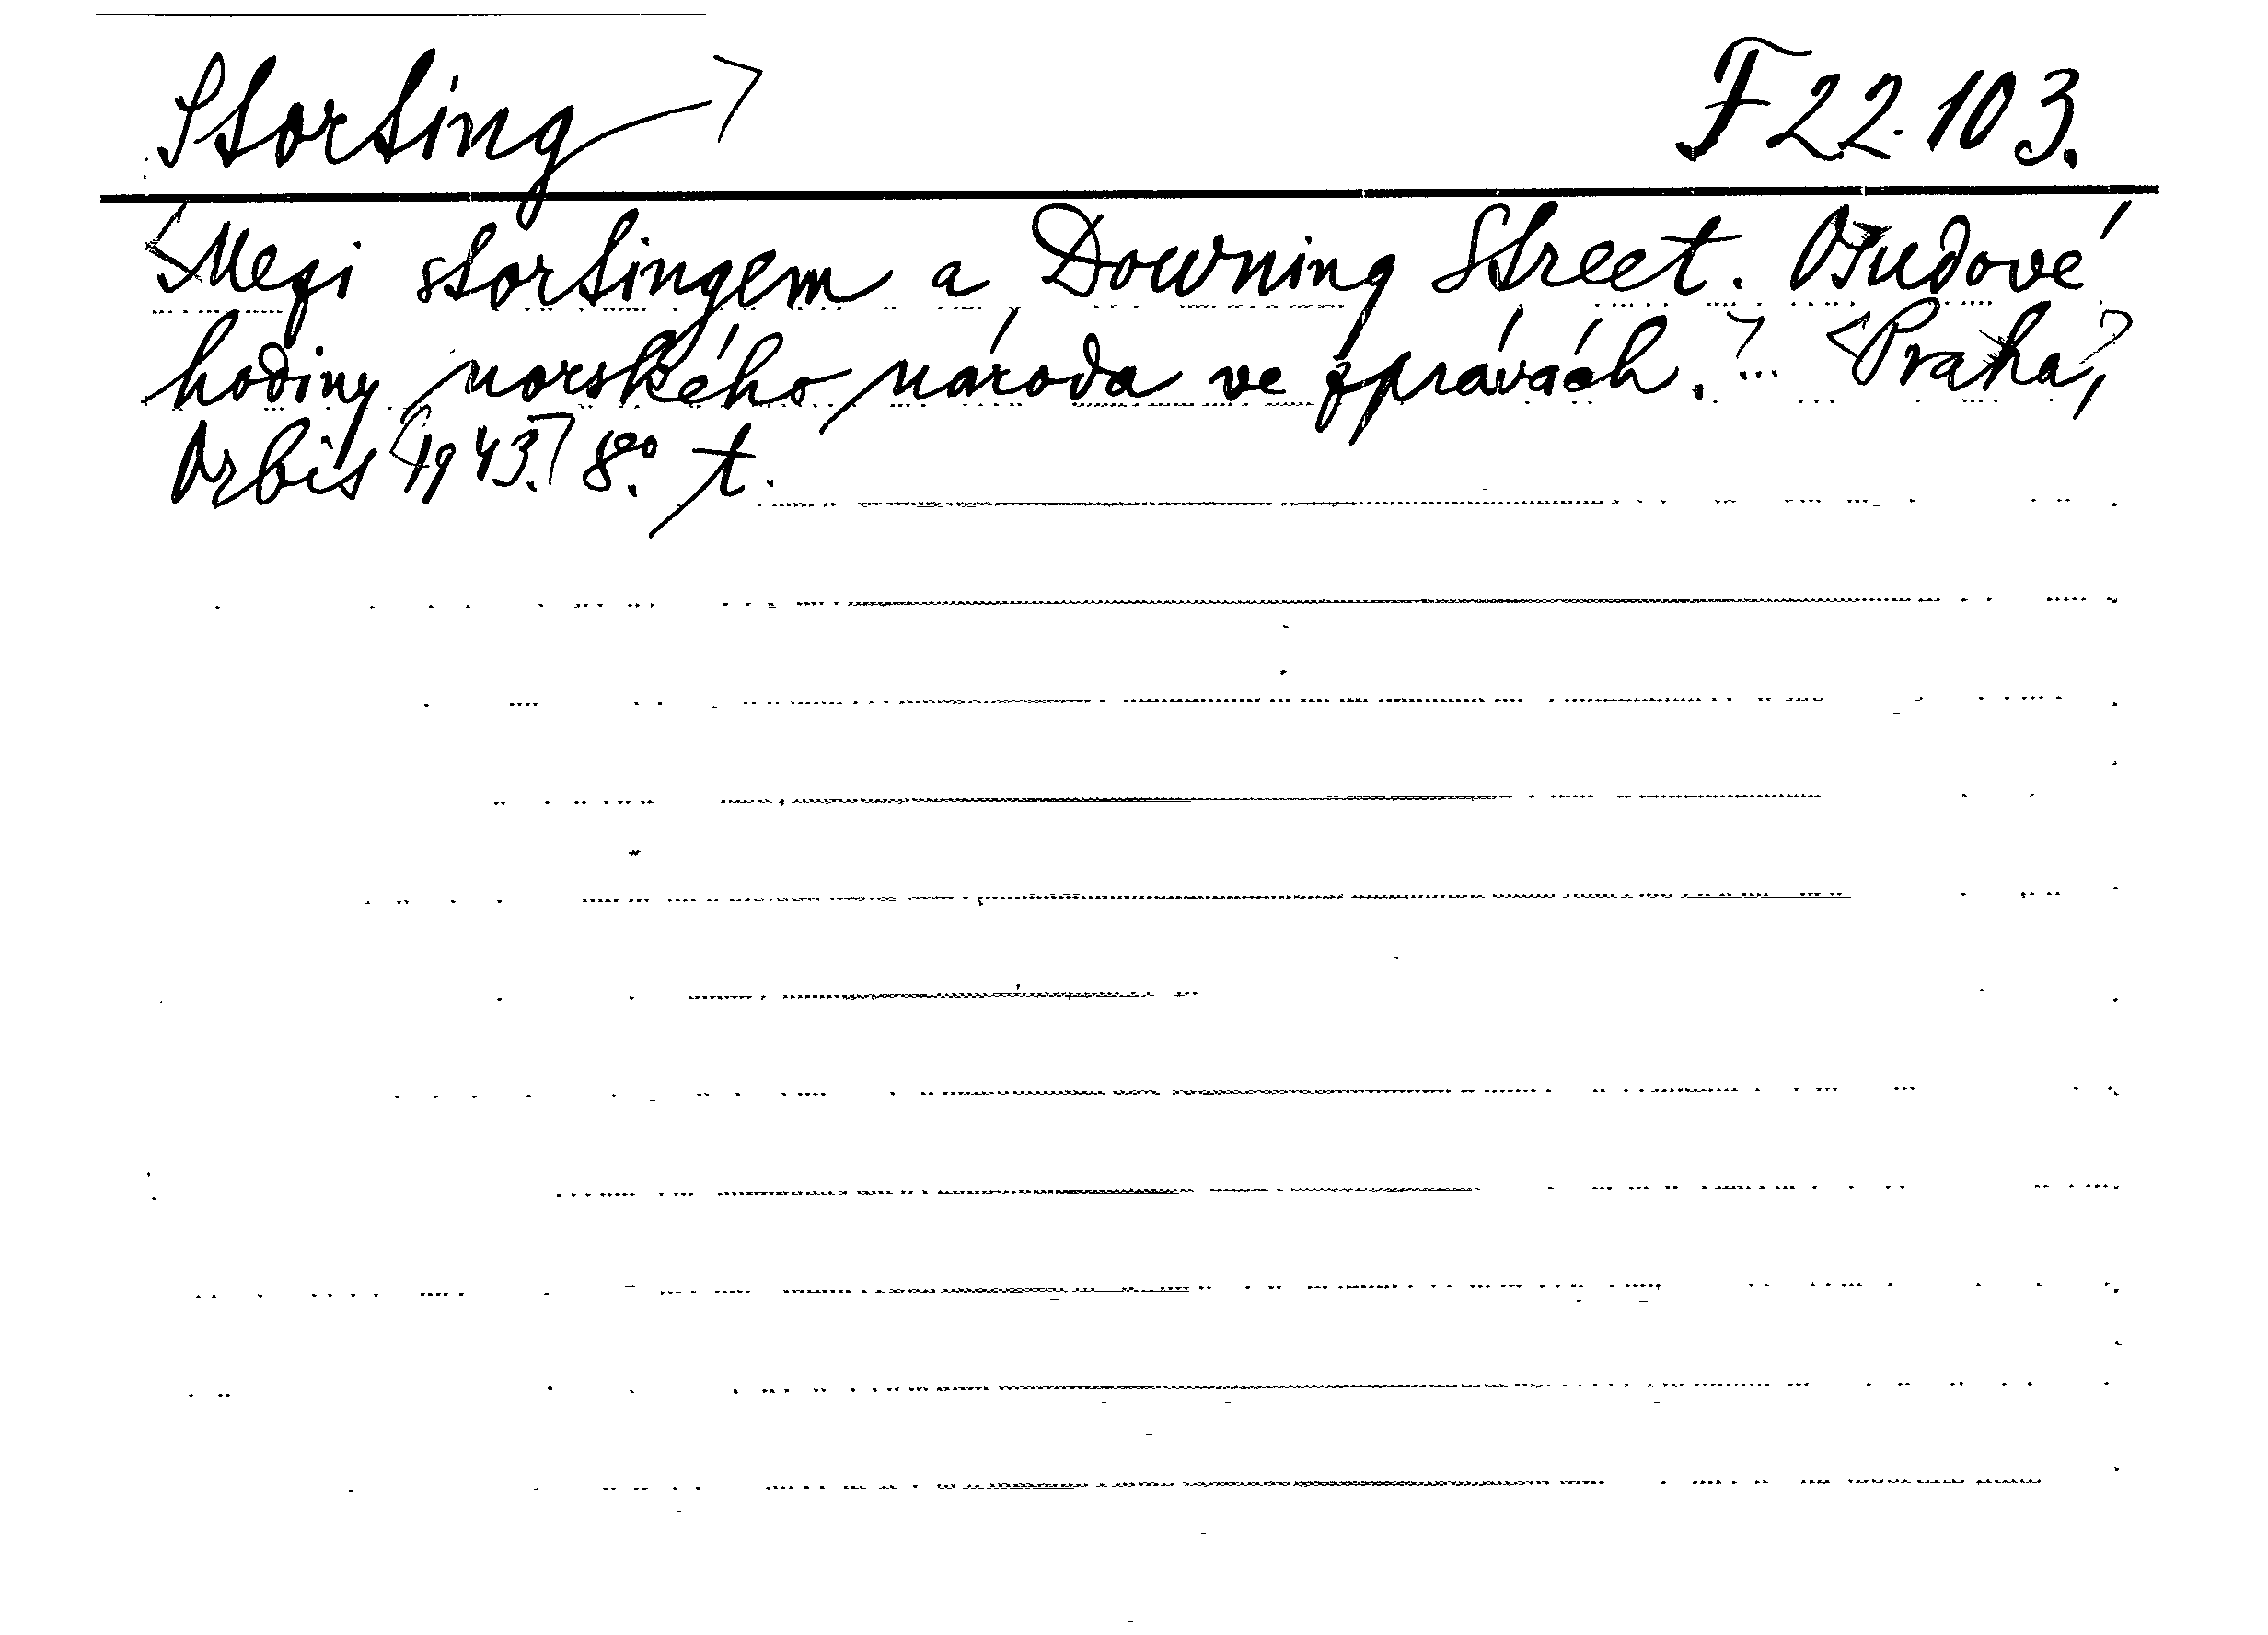 Storting F 22.103.
Mezi stortingem a Downing Street. Osudové
hodiny norského národa ve zprávách. ... Praha,
Orbis 1943. 8°. t.